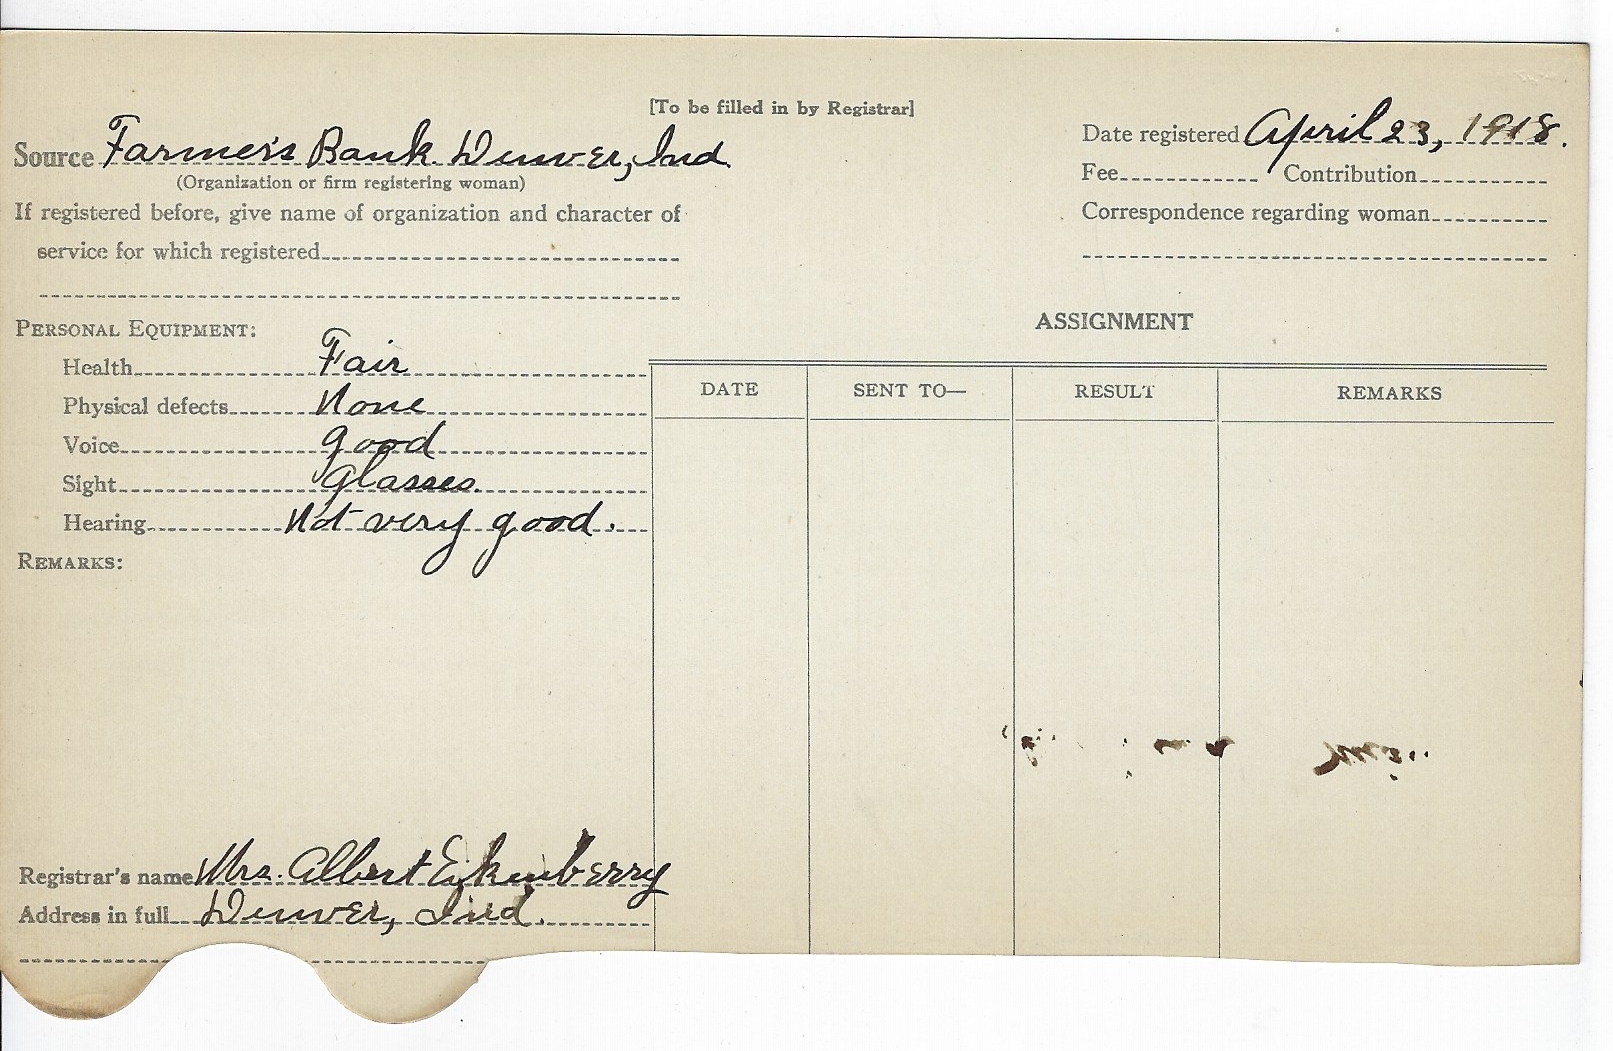 [To be filled in by Registrar]
Source Farmer's Bank Denver, Ind.
(Organization or firm registering woman)
If registered before, give name of organization and character of
service for which registered
Date registered April 23, 1918.
Fee Contribution
Correspondence regarding woman
PERSONAL EQUIPMENT:
Health Fair
Physical defects None
Voice good
Sight glasses.
Hearing Not very good.
REMARKS:
ASSIGNMENT
DATE SENT TO— RESULT REMARKS
Registrar's name Mrs. Albert Eikenberry
Address in full Denver, Ind.